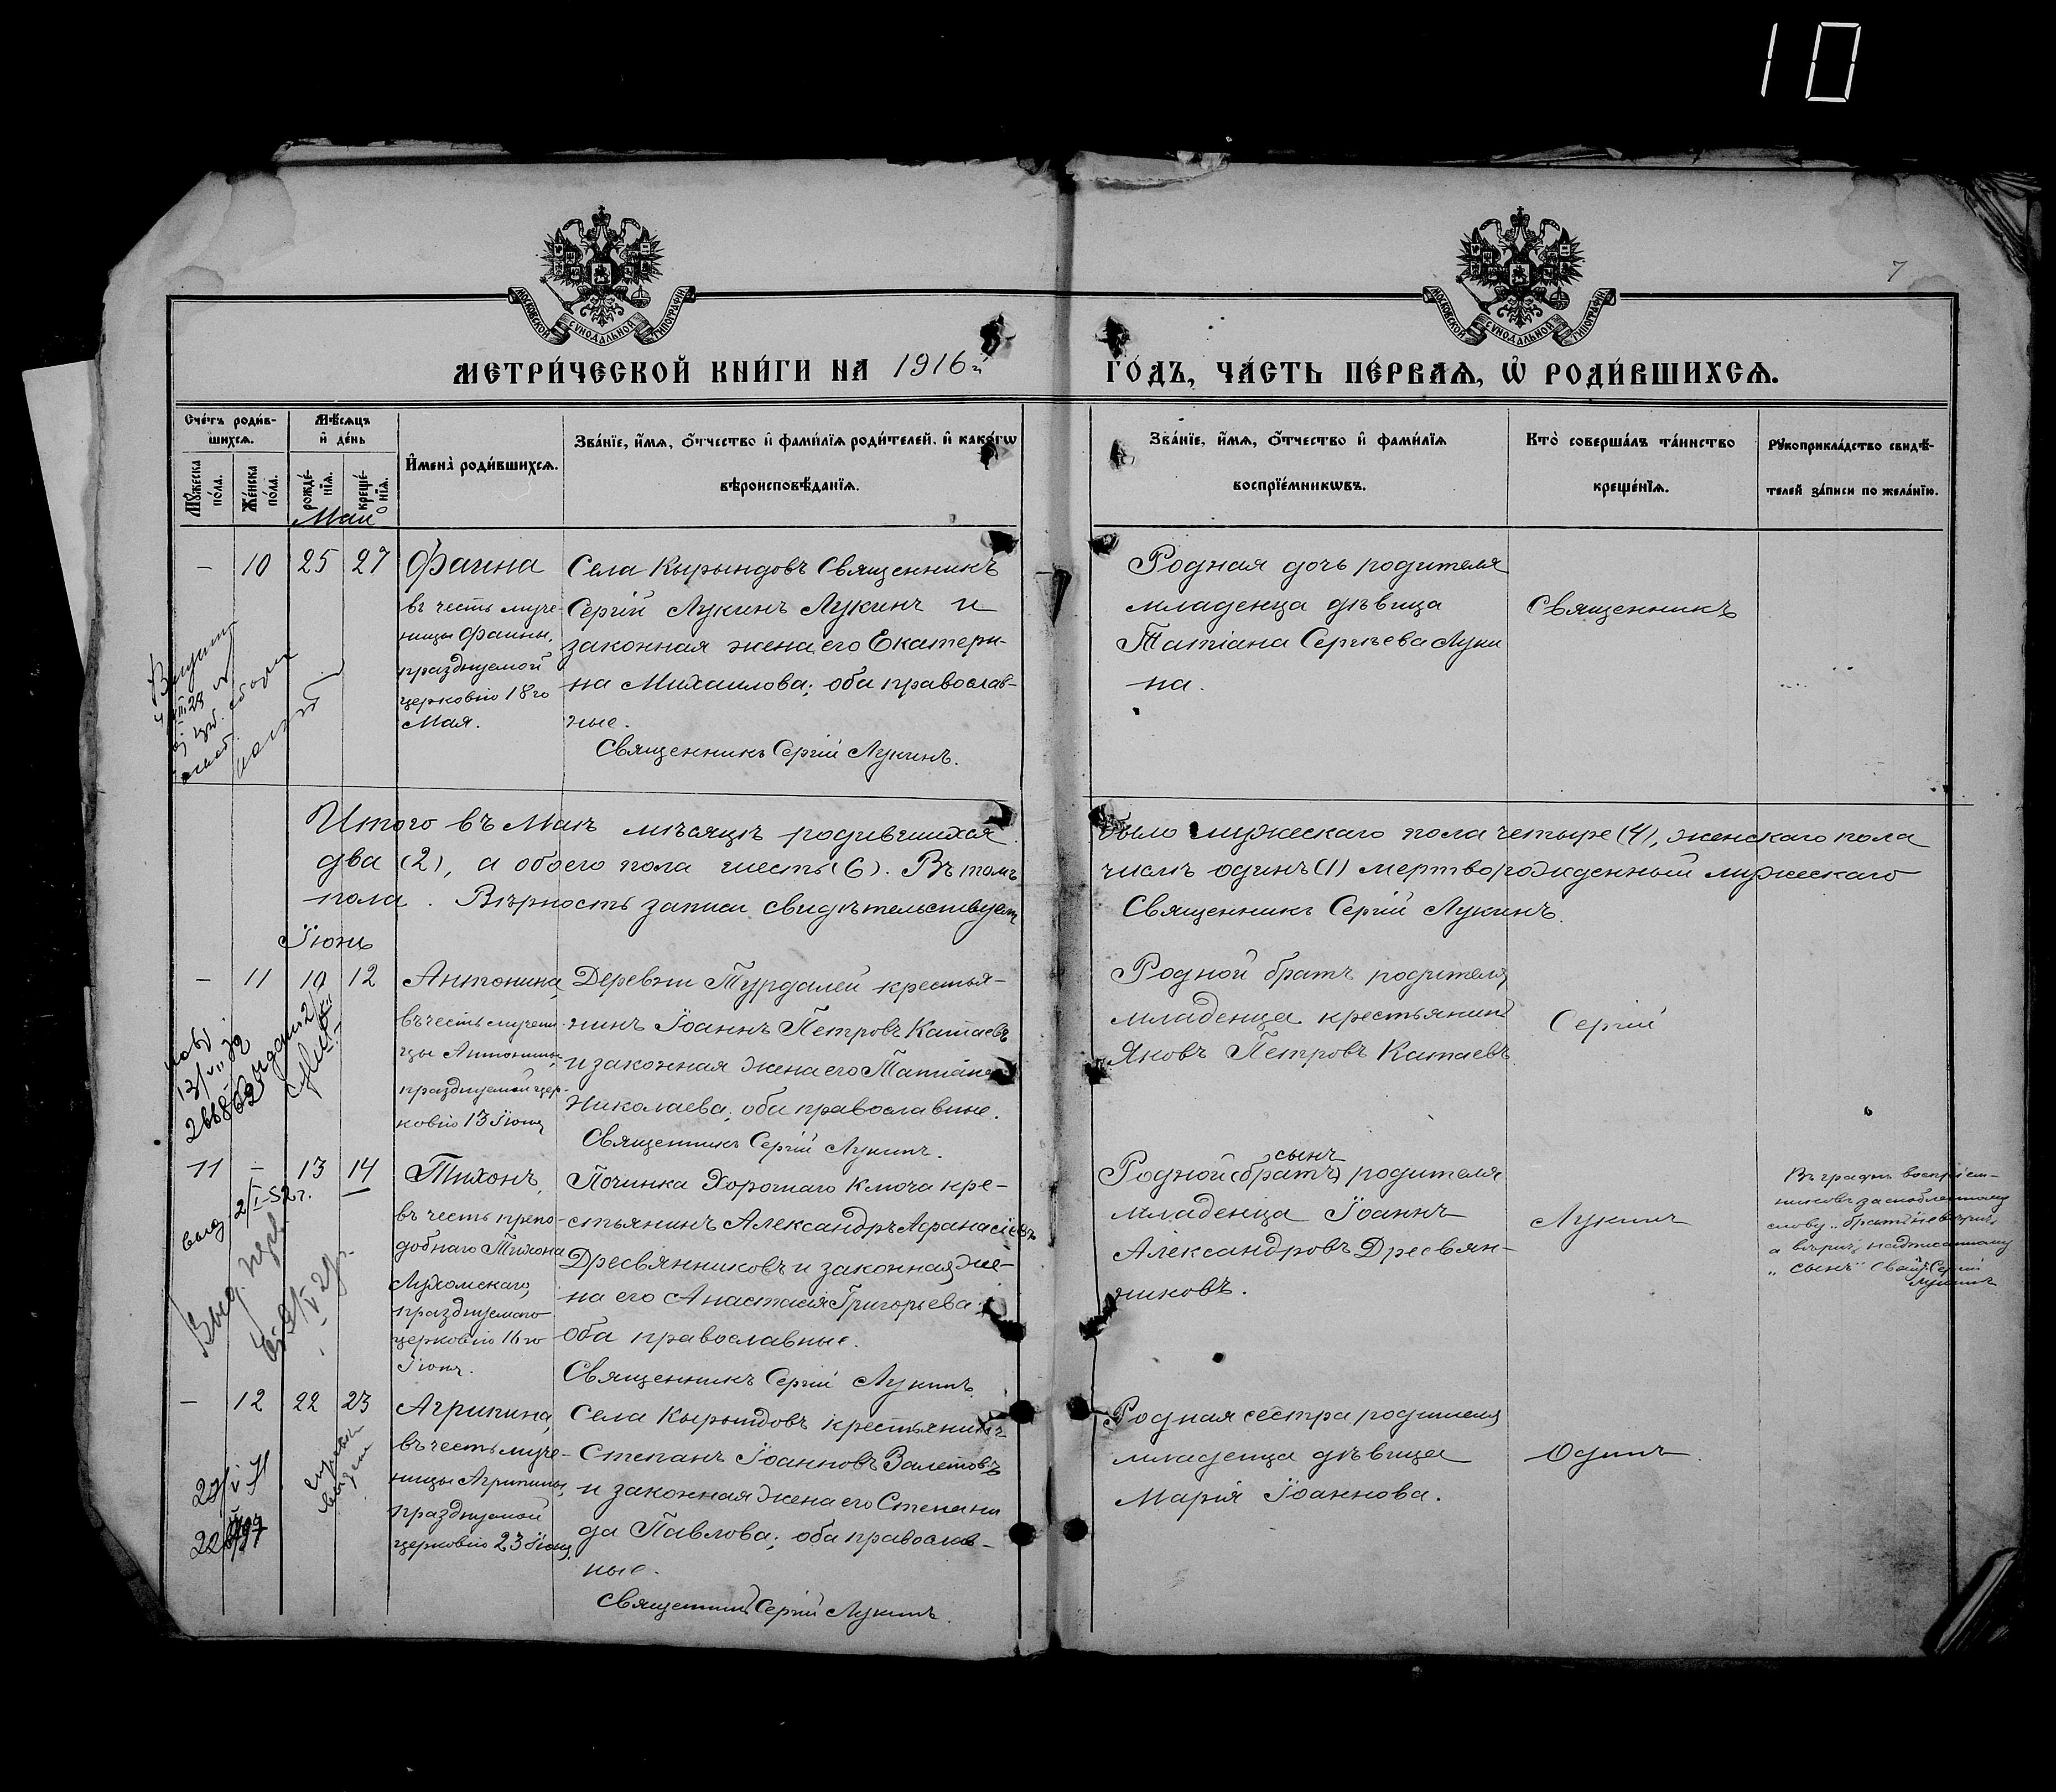 10
7
МОСКОВСКОЙ СУНОДАЛЬНОЙ ТИПОГРАФІИ
МОСКОВСКОЙ СУНОДАЛЬНОЙ ТИПОГРАФІИ
МЕТРИ́ЧЕСКОЙ КНИ́ГИ НА 1916й ГО́ДЪ, ЧА́СТЬ ПЕ́РВАѦ, Ѡ҆ РОДИ́ВШИХСѦ.
Сче́тъ роди́в-
шихсѧ.
Мѣ́сѧцъ
и҆ де́нь
Мꙋ́жеска по́ла.
Же́нска по́ла.
рожде́-нїѧ.
креще́-нїѧ.
И҆мена̀ роди́вшихсѧ.
Зва́нїе, и҆́мѧ, ѻ҆́тчество и҆ фами́лїѧ роди́телей, и҆ како́гѡ
вѣроисповѣ́данїѧ.
Зва́нїе, и҆́мѧ, ѻ҆́тчество и҆ фами́лїѧ
воспрїе́мникѡвъ.
Кто̀ соверша́лъ та́инство
креще́нїѧ.
Рꙋкоприкла́дство свидѣ́-
телей за́писи по жела́нїю.
Май
— 10 25 27
Фаина
въ честь муче-
ницы Фаины,
празднуемой
церковію 18го
Мая.
Села Кырындовъ Священникъ
Сергій Лукинъ Лукинъ и
законная жена его Екатери-
на Михаилова; оба православ-
ные.
Священникъ Сергій Лукинъ.
Родная дочь родителя
младенца дѣвица
Татіана Сергѣева Луки
на.
Священникъ
Итого въ Маѣ мѣсяцѣ родившихся было мужескаго пола четыре (4), женскаго пола
два (2), а обоего пола шесть (6). Въ томъ числѣ одинъ (1) мертворожденный мужескаго
пола. Вѣрность записи свидѣтельствуетъ Священникъ Сергій Лукинъ.
Іюнь
— 11 10 12
Антонина,
въ честь мучени-
цы Антонины,
празднуемой цер-
ковію 13 Іюня
Деревни Турдалей крестья-
нинъ Іоаннъ Петровъ Катаевъ
и законная жена его Татіана
Николаева; оба православные.
Священникъ Сергій Лукинъ.
Родной братъ родителя
младенца крестьянинъ
Яковъ Петровъ Катаевъ.
Сергій
11 — 13 14
Тихонъ,
въ честь препо-
добнаго Тихона
Лухомскаго,
празднуемаго
церковію 16го
Іюня.
Починка Хорошаго Ключа кре-
стьянинъ Александръ Аѳанасіевъ
Дресвянниковъ и законная же-
на его Анастасія Григорьева;
оба православные.
Священникъ Сергій Лукинъ.
сынъ
Родной (братъ) родителя
младенца Іоаннъ
Александровъ Дресвян-
никовъ.
Лукинъ
Въ графѣ воспріем-
никовъ заскобленному
слову „братъ“ не вѣрить,
а вѣрить надписанному
„сынъ“ Свящ. Сергій
Лукинъ
выд 2/I-52г.
— 12 22 23
Агрипина,
въ честь муче-
ницы Агрипины,
празднуемой
церковію 23 Іюня
Села Кырындовъ крестьянинъ
Степанъ Іоанновъ Залетовъ
и законная жена его Степани
да Павлова; оба православ-
ные.
Священникъ Сергій Лукинъ.
Родная сестра родителя
младенца дѣвица
Марія Іоаннова.
Одинъ